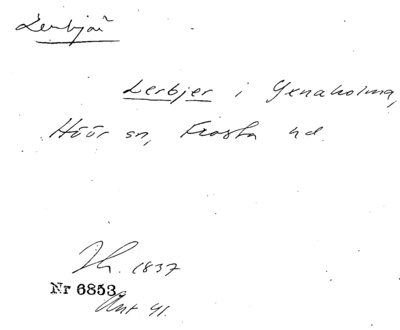 Lerbjär
Lerbjer i Yxnaholma,
Höör sn, Frosta hd.
1837
Nr 6853
Ant 41.